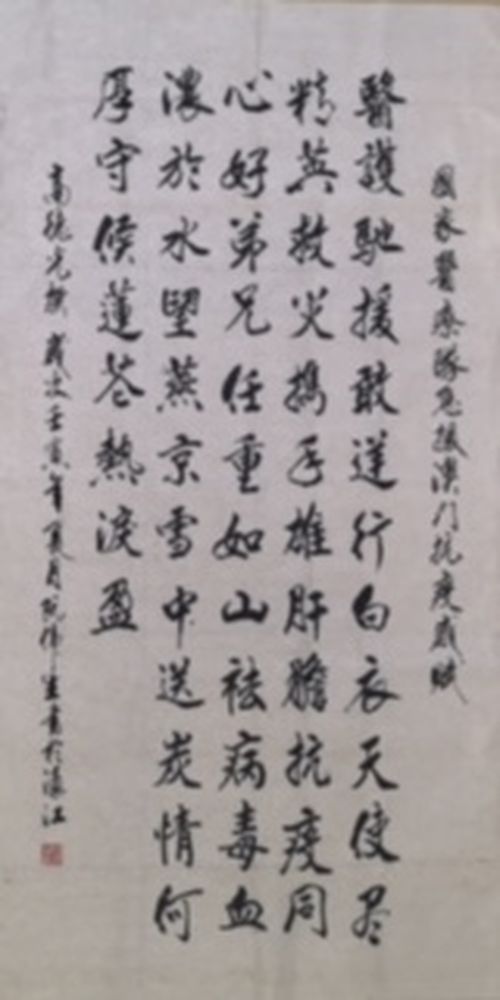 國家醫療隊急援澳门抗疫感賦
醫護馳援敢逆行白衣天使尽
精英救火携手雄肝膽抗疫同
心好弟兄任重如山祛病毒血
濃於水望燕京雪中送炭情何
厚守候蓮花熱淚盈
高德光撰 歲次壬寅年夏月阮偉生書於濠江